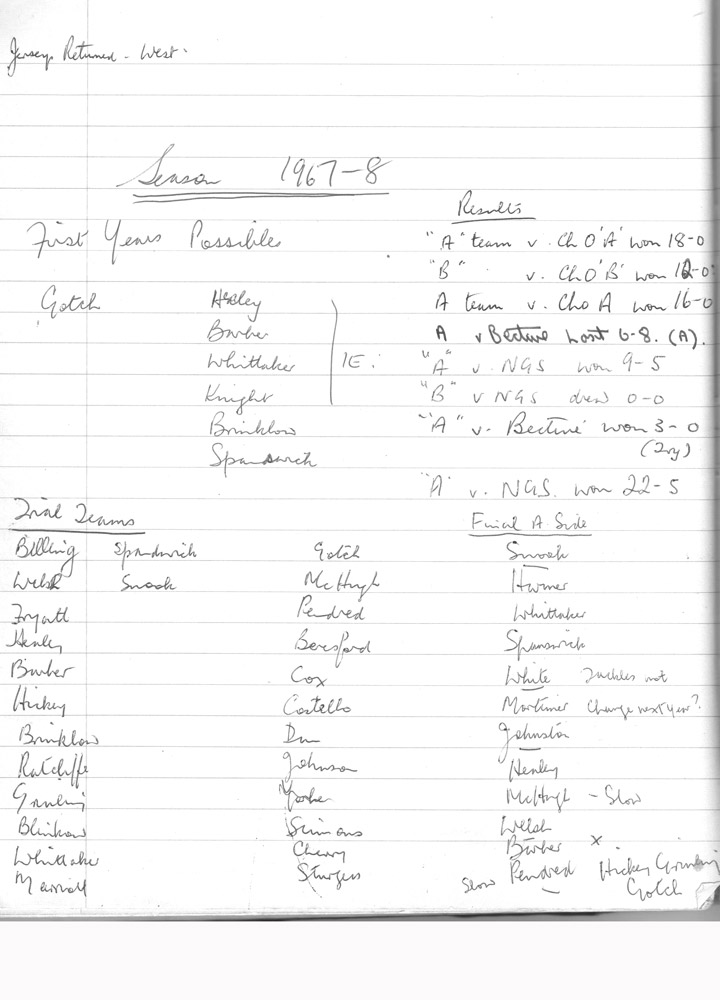 Jerseys Returned - West.
Season 1967-8
First Years Possibles
Gotch
Henley
Barber
Whittaker
Knight
Brinklow
Spandwick
IE:
Results
"A" team v. Ch O 'A' won 18-0
"B" v. Ch O 'B' won 12-0
A team v. Cho A won 16-0
A v Bective Lost 6-8. (A).
"A" v. NGS won 9-5
"B" v NGS drew 0-0
"A" v. Bective won 3-0
"A" v. NGS. won 22-5
Trial Teams
Billing Spandwick Gotch
Welsh Snook McHugh
Fryatt Pendred
Henley Beresford
Barber Cox
Hickey Costello
Brinklow
Ratcliffe Johnson
Simons
Whittaker Cherry
Sturgess
Final A-Side
Snook
Harmer
Whittaker
Spanswick
White Tackles not
Mortimer Change next year?
Johnston
Henley
McHugh - Slow
Welsh
Barber x
Slow Pendred Hickey
Gotch